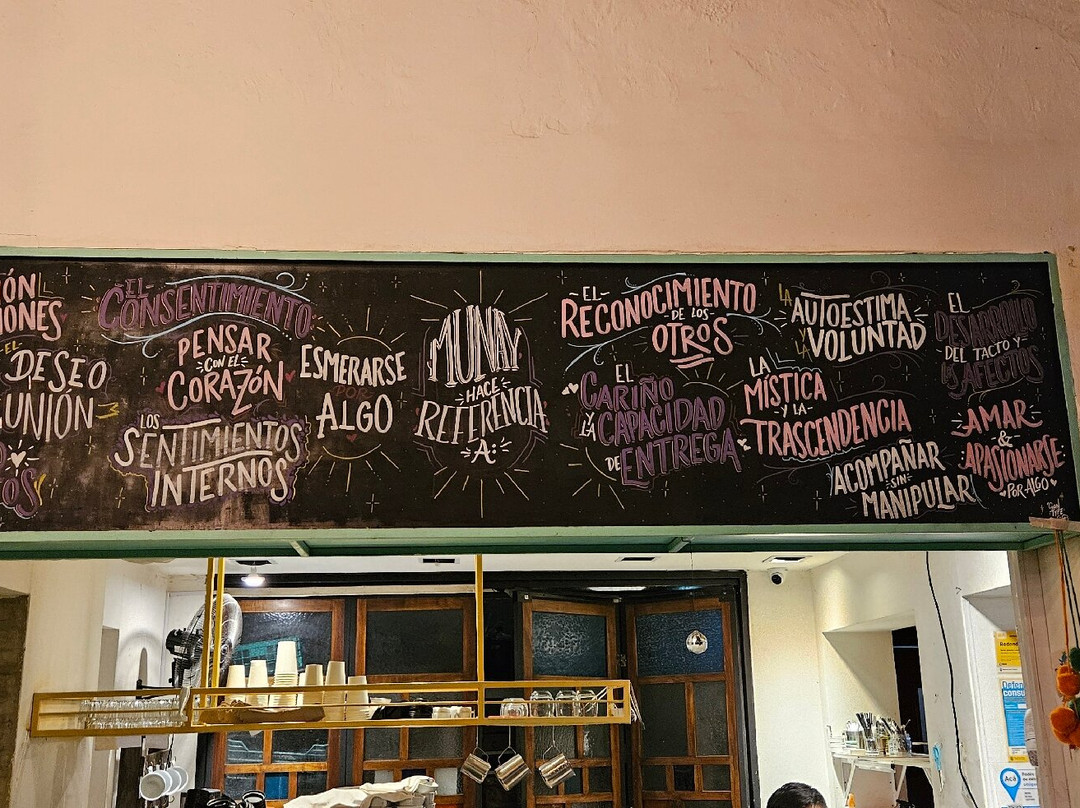 EL
DESEO
UNIÓN
EL
CONSENTIMIENTO
PENSAR
CON EL
CORAZÓN
LOS
SENTIMIENTOS
INTERNOS
ESMERARSE
POR
ALGO
MUNAY
HACE
REFERENCIA
A:
EL
RECONOCIMIENTO
DE LOS
OTROS
EL
CARIÑO
Y LA CAPACIDAD
DE ENTREGA
LA
AUTOESTIMA
Y LA
VOLUNTAD
LA
MÍSTICA
Y LA
TRASCENDENCIA
ACOMPAÑAR
SIN
MANIPULAR
EL
DESARROLLO
DEL TACTO Y
LOS AFECTOS
AMAR
&
APASIONARSE
POR ALGO